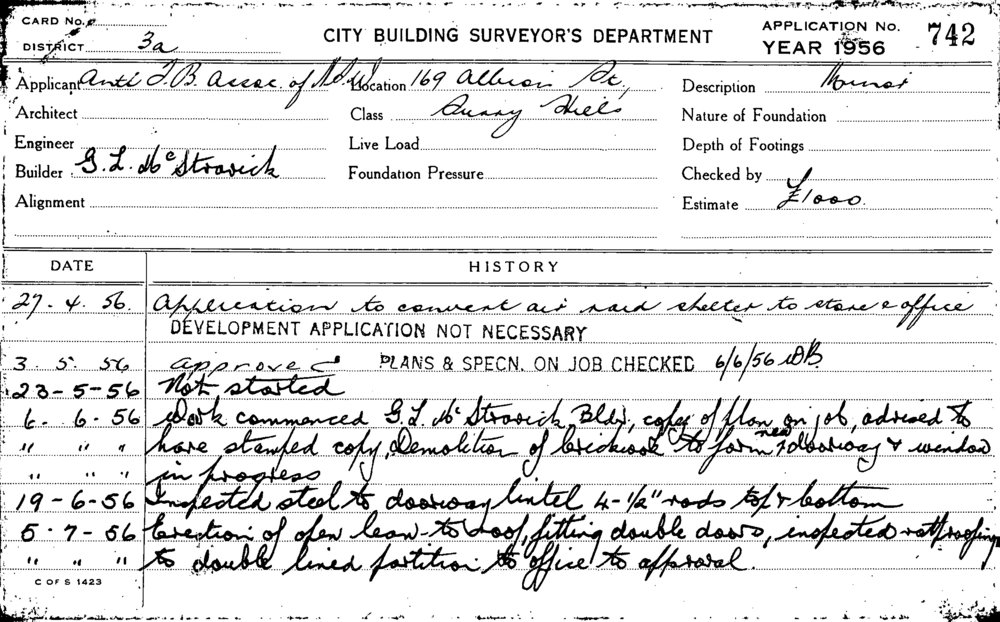 CARD No.
DISTRICT 3a
CITY BUILDING SURVEYOR'S DEPARTMENT
APPLICATION No. 742
YEAR 1956
Applicant Anti T.B. Assoc. of N.S.W. Location 169 Albion St., Description Minor
Architect Class Surry Hills Nature of Foundation
Engineer Live Load Depth of Footings
Builder G.L. McStravick Foundation Pressure Checked by
Alignment Estimate £1000.
DATE HISTORY
27. 4. 56. Application to convert air raid shelter to store & office
DEVELOPMENT APPLICATION NOT NECESSARY
3. 5. 56 approved PLANS & SPECN. ON JOB CHECKED 6/6/56 WB.
23-5-56 Not started
6. 6-56 Work commenced G.L. McStravick Bldr, copy of plan on job, advised to
" " " have stamped copy, Demolition of brickwork to form new doorway & window
" " " in progress
19-6-56 Inspected steel to doorway lintel 4-1/2" rods top & bottom
5-7-56 Erection of open lean-to roof, fitting double doors, inspected ratproofing
" " " to double lined partition to office to approval.
C OF S 1423